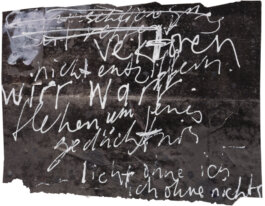 verloren
nicht entziffern
wirr warr
flehen um jenes
gedächtnis
licht ohne ich
ich ohne nichts